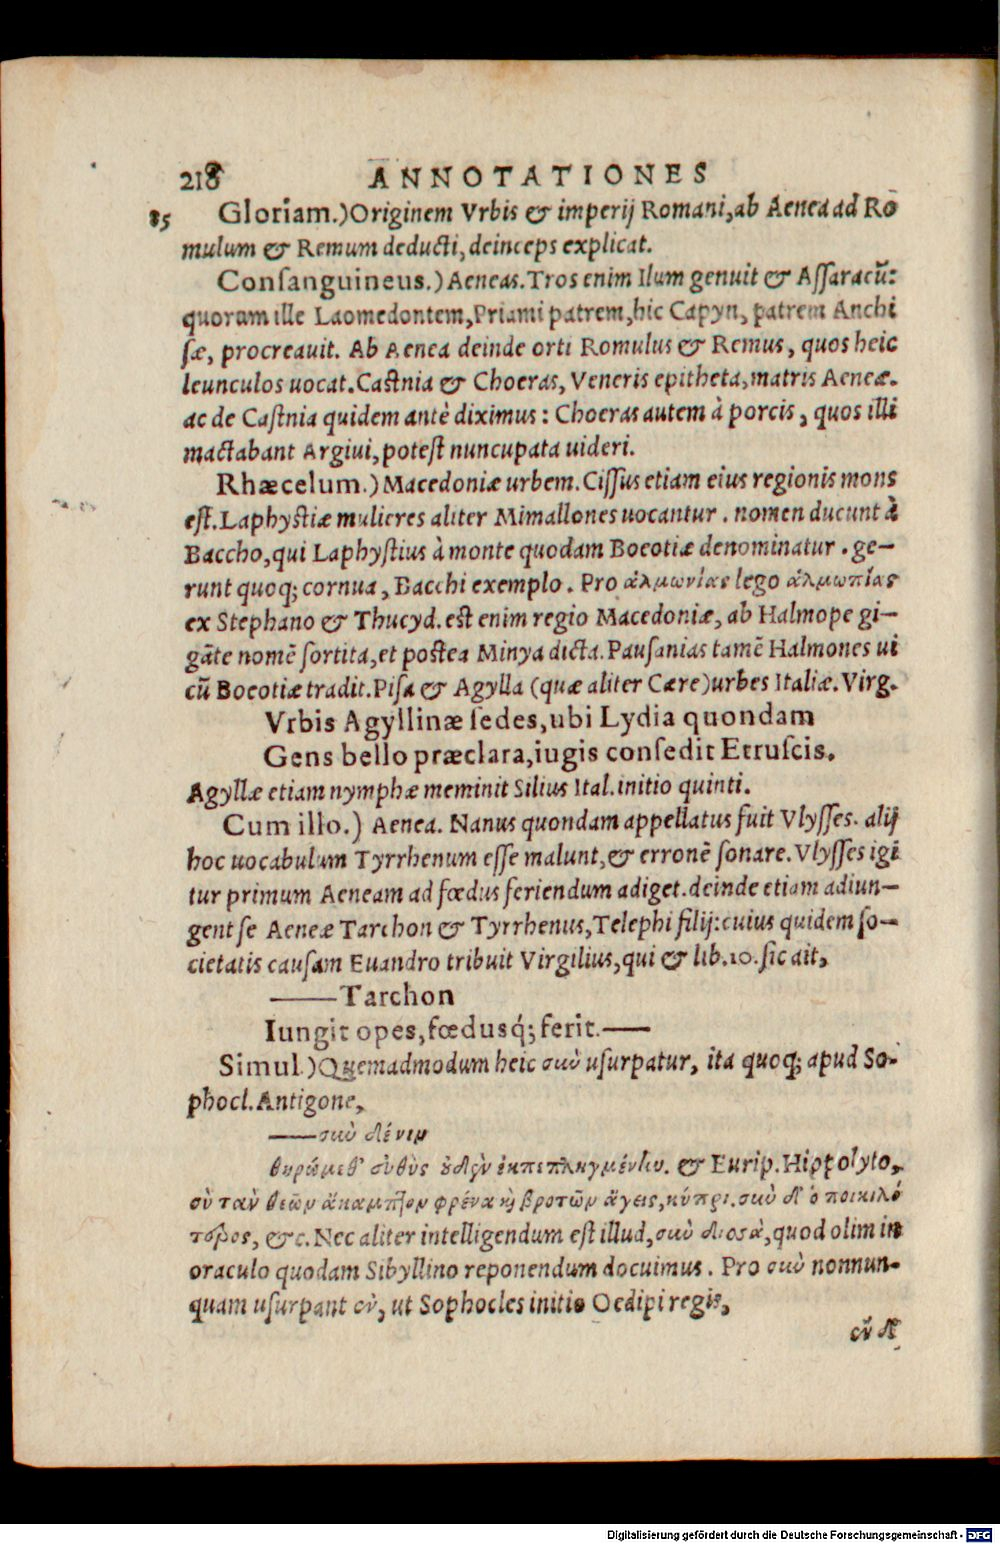 218 ANNOTATIONES
85 Gloriam.) Originem Vrbis & imperij Romani, ab Aenea ad Rō
mulum & Remum deducti, deinceps explicat.
Consanguineus.) Aeneas. Tros enim Ilum genuit & Assaracū:
quorum ille Laomedontem, Priami patrem, hic Capyn, patrem Anchi
sæ, procreauit. Ab Aenea deinde orti Romulus & Remus, quos heic
leunculos uocat. Castnia & Choeras, Veneris epitheta, matris Aeneæ.
ac de Castnia quidem antè diximus: Choeras autem à porcis, quos illi
mactabant Argiui, potest nuncupata uideri.
Rhæcelum.) Macedoniæ urbem. Cissus etiam eius regionis mons
est. Laphystiæ mulieres aliter Mimallones uocantur. nomen ducunt à
Baccho, qui Laphystius à monte quodam Boeotiæ denominatur. ge-
runt quoq; cornua, Bacchi exemplo. Pro ἁλμωνίας lego ἁλμωπίας
ex Stephano & Thucyd. est enim regio Macedoniæ, ab Halmope gi-
gāte nomē sortita, et postea Minya dicta. Pausanias tamē Halmones ui
cū Boeotiæ tradit. Pisa & Agylla (quæ aliter Cære) urbes Italiæ. Virg.
Vrbis Agyllinæ sedes, ubi Lydia quondam
Gens bello præclara, iugis consedit Etruscis.
Agyllæ etiam nymphæ meminit Silius Ital. initio quinti.
Cum illo.) Aenea. Nanus quondam appellatus fuit Vlysses. alij
hoc uocabulum Tyrrhenum esse malunt, & erronē sonare. Vlysses igi
tur primum Aeneam ad fœdus feriendum adiget. deinde etiam adiun-
gent se Aeneæ Tarchon & Tyrrhenus, Telephi filij: cuius quidem so-
cietatis causam Euandro tribuit Virgilius, qui & lib. 10. sic ait,
—Tarchon
Iungit opes, fœdusq́; ferit.—
Simul.) Quemadmodum heic σὺν usurpatur, ita quoq; apud So-
phocl. Antigone,
—σὺν δέ νιν
θηρώμεθ' εὐθὺς οὐδὲν ἐκπεπληγμένην. & Eurip. Hippolyto,
σὺ τὰν θεῶν ἄκαμπτον φρένα καὶ βροτῶν ἄγεις, κύπρι. σὺν δ' ὁ ποικιλό
πτερος, &c. Nec aliter intelligendum est illud, quod olim in
oraculo quodam Sibyllino reponendum docuimus. Pro σὺν nonnun-
quam usurpant ἐν, ut Sophocles initio Oedipi regis,
ἐν δ'
Digitalisierung gefördert durch die Deutsche Forschungsgemeinschaft - DFG